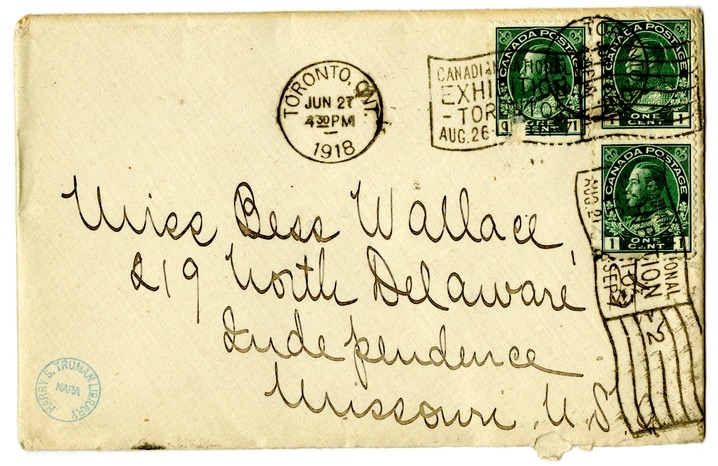 TORONTO, ONT.
JUN 27
4 30 PM
1918
CANADIAN
EXHI TION
- TORONTO -
AUG. 26
CANADA POSTAGE
ONE
CENT
CANADA POSTAGE
1 ONE 1
CENT
CANADA POSTAGE
1 ONE 1
CENT
Miss Bess Wallace,
219 North Delaware,
Independence
Missouri. U.S.
HARRY S. TRUMAN LIBRARY
NARA